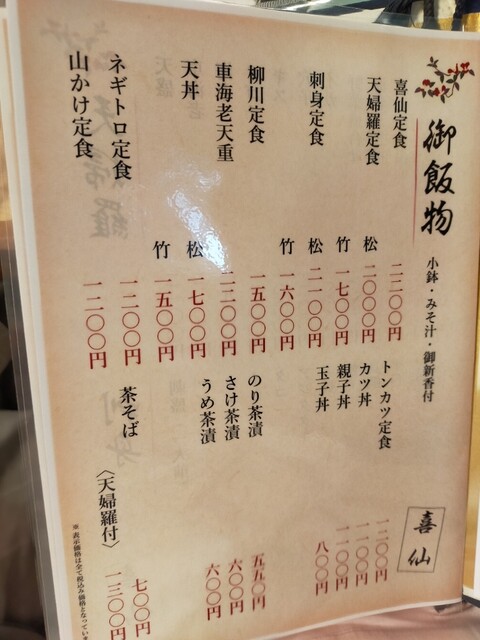 御飯物
小鉢・みそ汁・御新香付
喜仙定食 二二〇〇円
天婦羅定食 松 二〇〇〇円
竹 一七〇〇円
刺身定食 松 二一〇〇円
竹 一六〇〇円
柳川定食 一五〇〇円
車海老天重 二二〇〇円
天丼 松 一七〇〇円
竹 一五〇〇円
ネギトロ定食 一二〇〇円
山かけ定食 一二〇〇円
トンカツ定食 一二〇〇円
カツ丼 一一〇〇円
親子丼 一一〇〇円
玉子丼 八〇〇円
のり茶漬 五五〇円
さけ茶漬 六〇〇円
うめ茶漬 六〇〇円
茶そば 七〇〇円
〈天婦羅付〉 一三〇〇円
喜仙
※表示価格は全て税込み価格となっていま